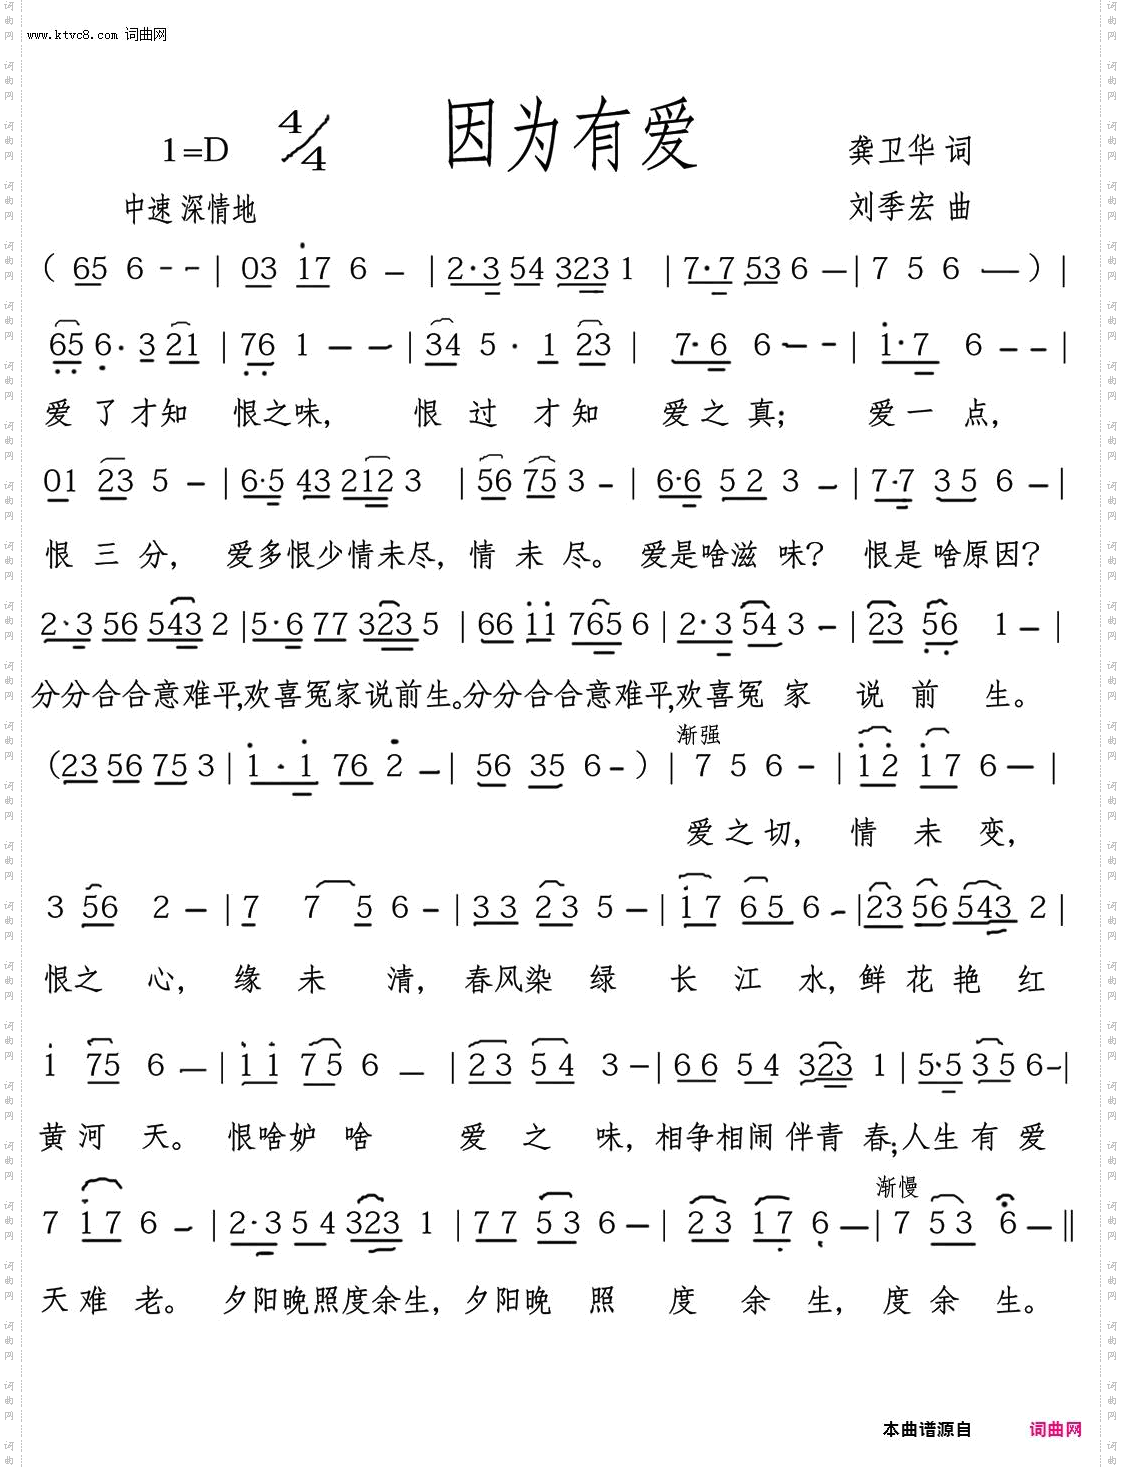 www.ktvc8.com 词曲网
因为有爱
1=D 4/4
龚卫华 词
中速 深情地
刘季宏 曲
( 65 6 - - | 03 17 6 - | 2·3 54 323 1 | 7·7 53 6 - | 7 5 6 - ) |
65 6· 3 21 | 76 1 - - | 34 5 · 1 23 | 7·6 6 - - | 1·7 6 - - |
爱 了 才知 恨之味， 恨 过 才 知 爱 之 真； 爱 一 点，
01 23 5 - | 6·5 43 212 3 | 56 75 3 - | 6·6 5 2 3 - | 7·7 3 5 6 - |
恨 三 分， 爱多恨少情未尽，情 未 尽。 爱是啥滋 味？ 恨是 啥原因？
2·3 56 543 2 | 5·6 77 323 5 | 66 11 765 6 | 2·3 54 3 - | 23 56 1 - |
分分合合意难平，欢喜冤家说前生。分分合合意难平，欢喜冤 家 说 前 生。
渐强
( 23 56 75 3 | 1 · 1 76 2 - | 56 35 6 - ) | 7 5 6 - | 1 2 1 7 6 - |
爱 之 切， 情 未 变，
3 56 2 - | 7 7 5 6 - | 3 3 2 3 5 - | 1 7 6 5 6 - | 23 56 543 2 |
恨之 心， 缘 未 清， 春风染 绿 长 江 水，鲜 花 艳 红
1 75 6 - | 1 1 7 5 6 - | 2 3 5 4 3 - | 6 6 5 4 323 1 | 5·5 3 5 6 - |
黄 河 天。 恨啥妒 啥 爱 之 味，相争相闹 伴青 春；人生 有 爱
渐慢
7 1 7 6 - | 2·3 5 4 323 1 | 7 7 5 3 6 - | 2 3 1 7 6 - | 7 5 3 6 - ‖
天 难 老。 夕阳晚照度余生，夕阳晚 照 度 余 生， 度 余 生。
本曲谱源自 词曲网